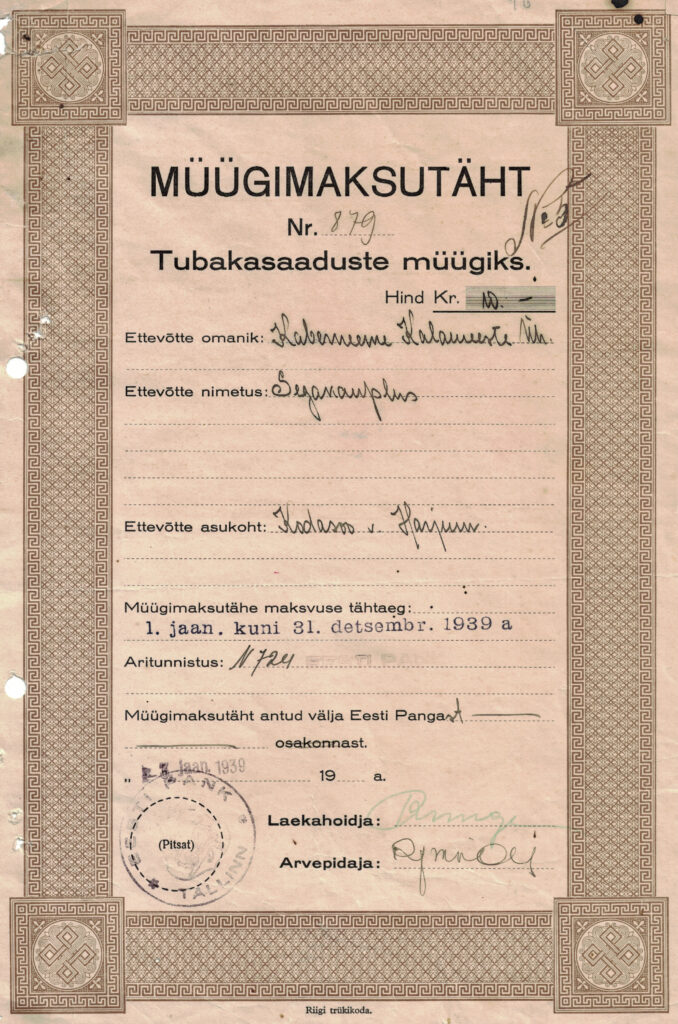 MÜÜGIMAKSUTÄHT
Nr. 879
No 5
Tubakasaaduste müügiks.
Hind Kr. 10. -
Ettevõtte omanik: Kaberneeme Kalameeste Üh.
Ettevõtte nimetus: Segakauplus
Ettevõtte asukoht: Kodasoo v. Harjum.
Müügimaksutähe maksvuse tähtaeg:
1. jaan. kuni 31. detsembr. 1939 a
Aritunnistus: N 724 EESTI PANK
Müügimaksutäht antud välja Eesti Pangast
osakonnast.
" jaan. 1939 19 a.
EESTI PANK
(Pitsat)
TALLINN
Laekahoidja:
Arvepidaja:
Riigi trükikoda.